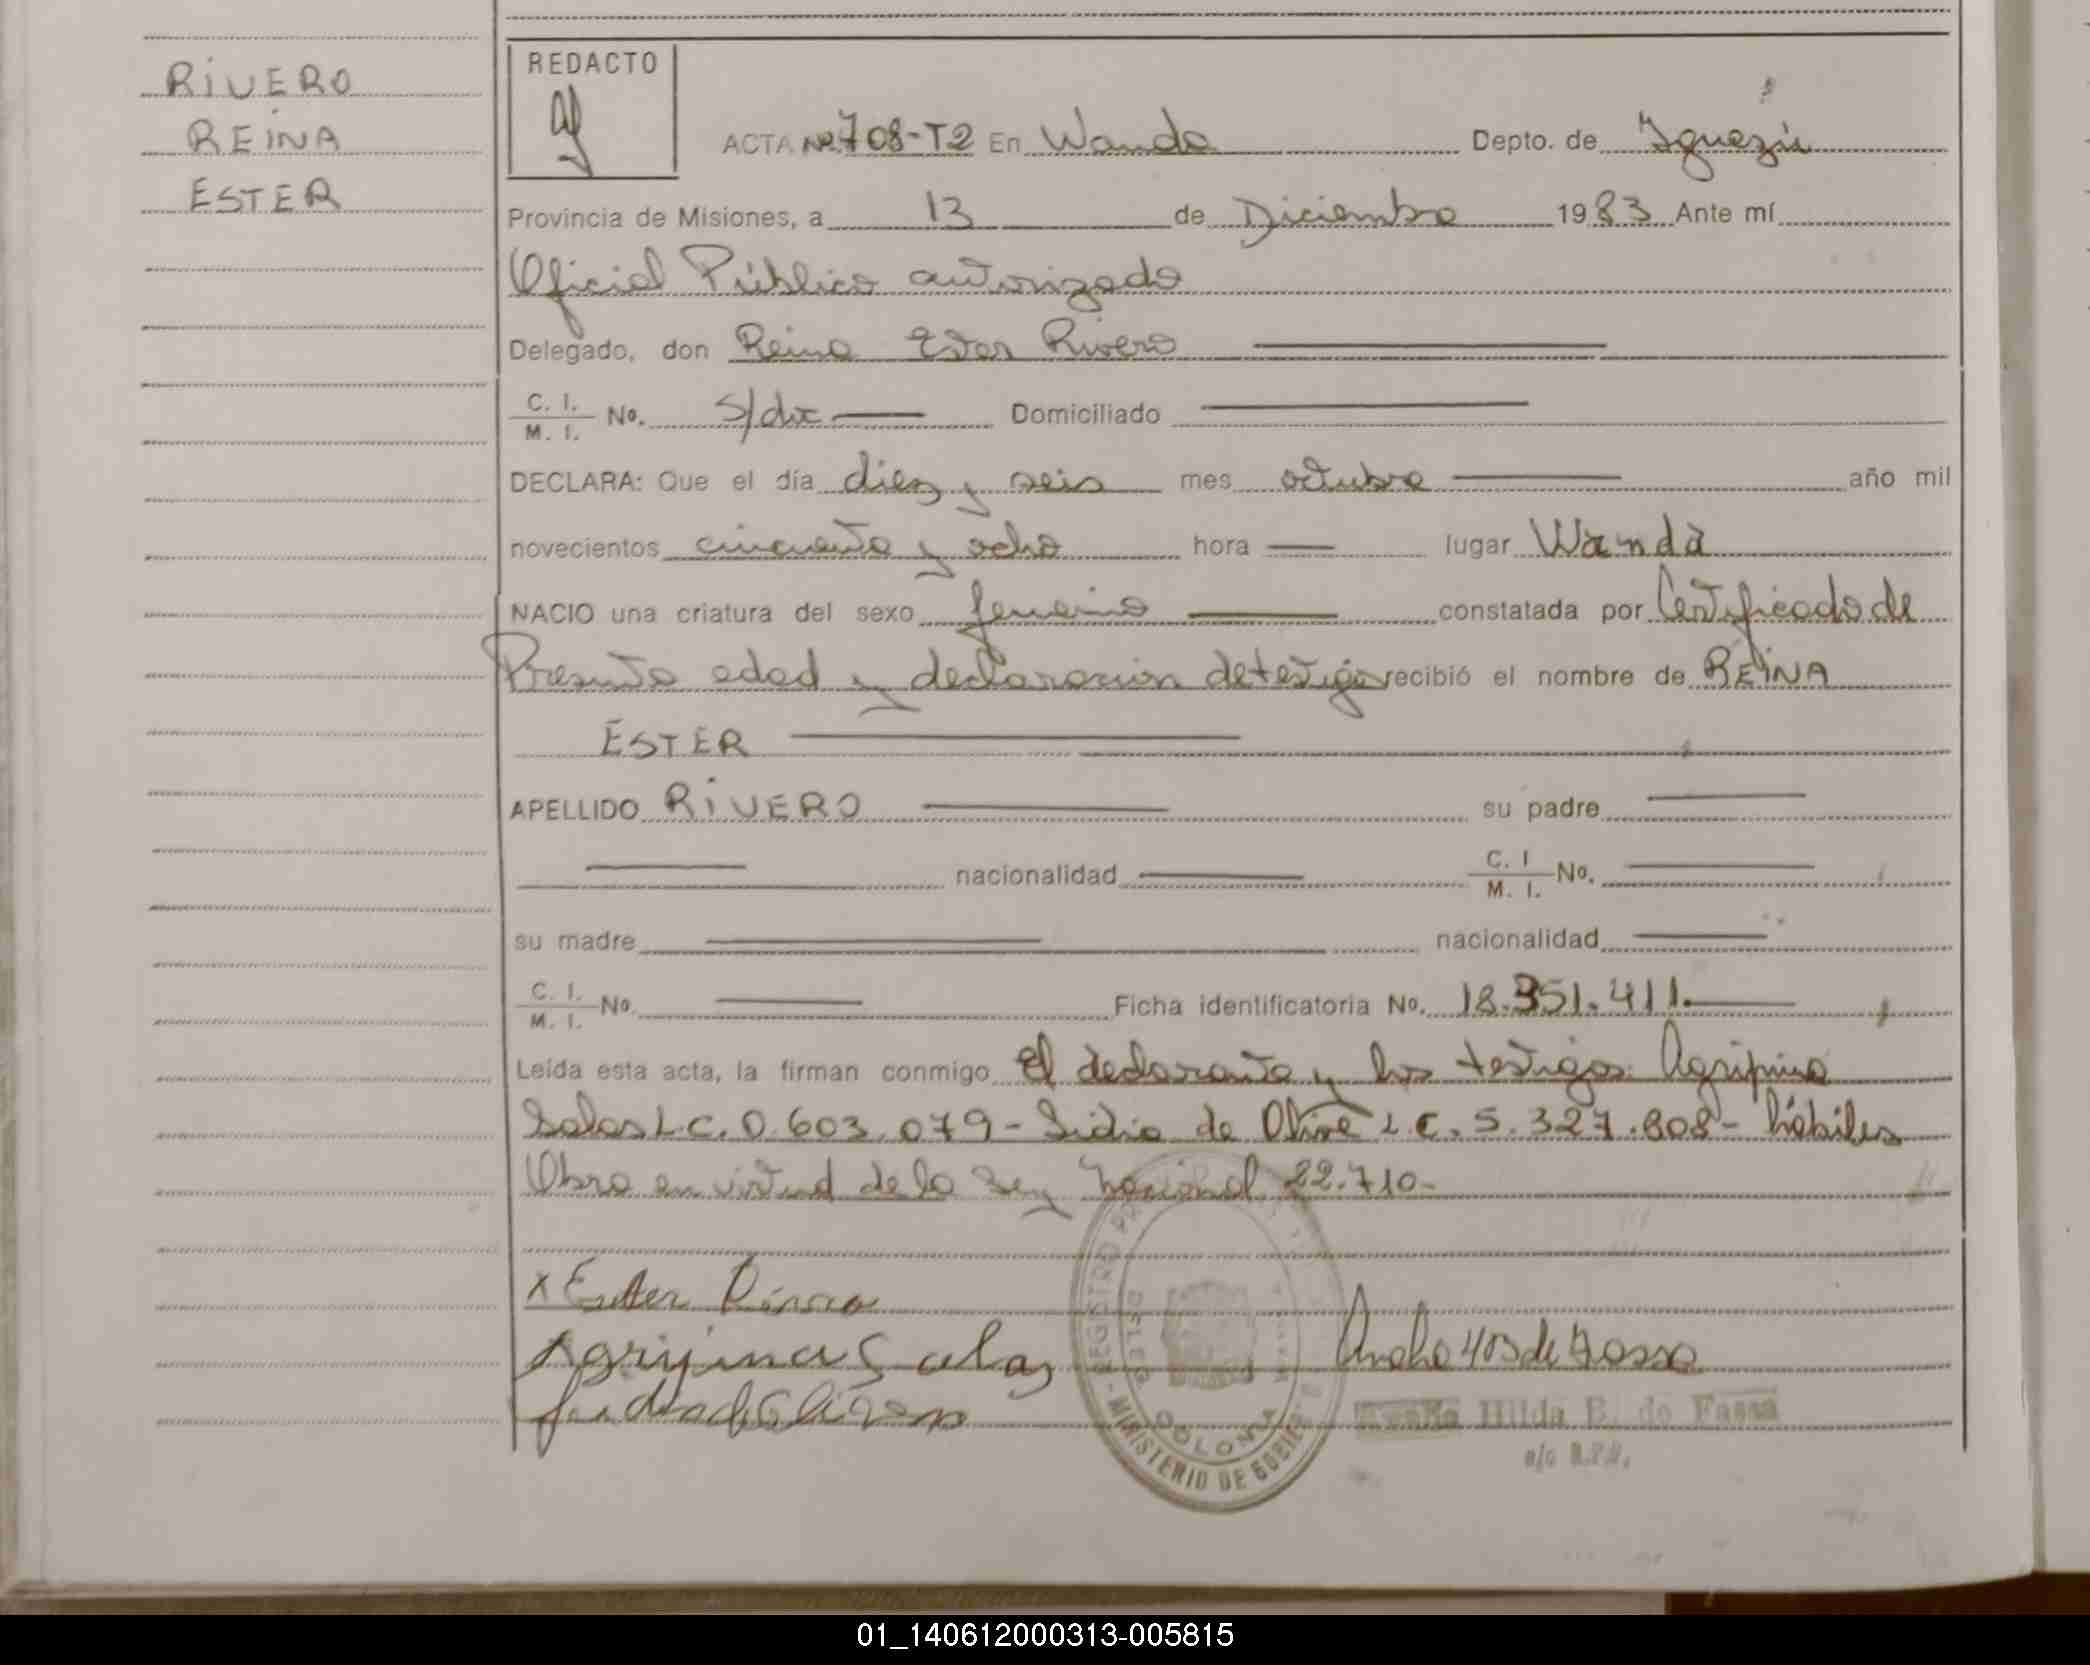 RIVERO
REINA
ESTER
REDACTO
ACTA Nº 708-T2 En Wanda Depto. de Iguazú
Provincia de Misiones, a 13 de Diciembre 1983 Ante mí
Oficial Público autorizado
Delegado, don Reina Ester Rivero
C. I. / M. I. No. s/doc Domiciliado
DECLARA: Que el día diez y seis mes octubre año mil
novecientos cincuenta y ocho hora lugar Wanda
NACIO una criatura del sexo femenino constatada por Certificado de
Presunta edad y declaracion de testigos recibió el nombre de REINA
ESTER
APELLIDO RIVERO su padre
nacionalidad C. I / M. I. No.
su madre nacionalidad
C. I. / M. I. No. Ficha identificatoria No. 18.351.411.
Leída esta acta, la firman conmigo el declarante y los testigos Agripina
Salas L.C. 0.603.079 - Lidia de Olivera L.C. 5.327.808 - hábiles
Obra en virtud de la Ley Nacional 22.710-
x Ester Rivero
Agripina Salas
REGISTRO
MINISTERIO DE GOBIE
COLONIA
Hilda B. de Fassa
a/c R.P.P.
01_140612000313-005815